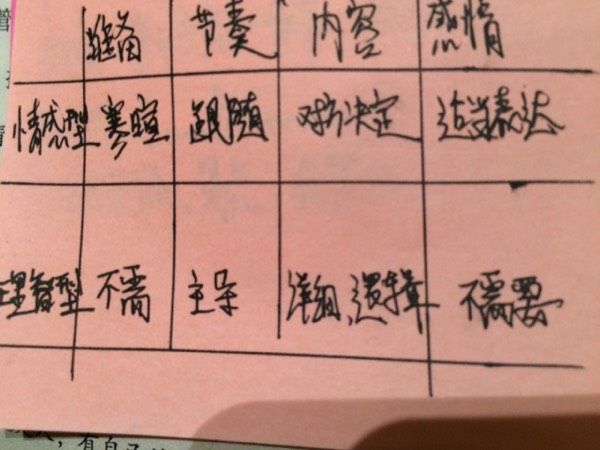 准备 节奏 内容 感情
情感型 寒暄 跟随 对方决定 适当表达
理智型 不需 主导 详细、逻辑 不需要